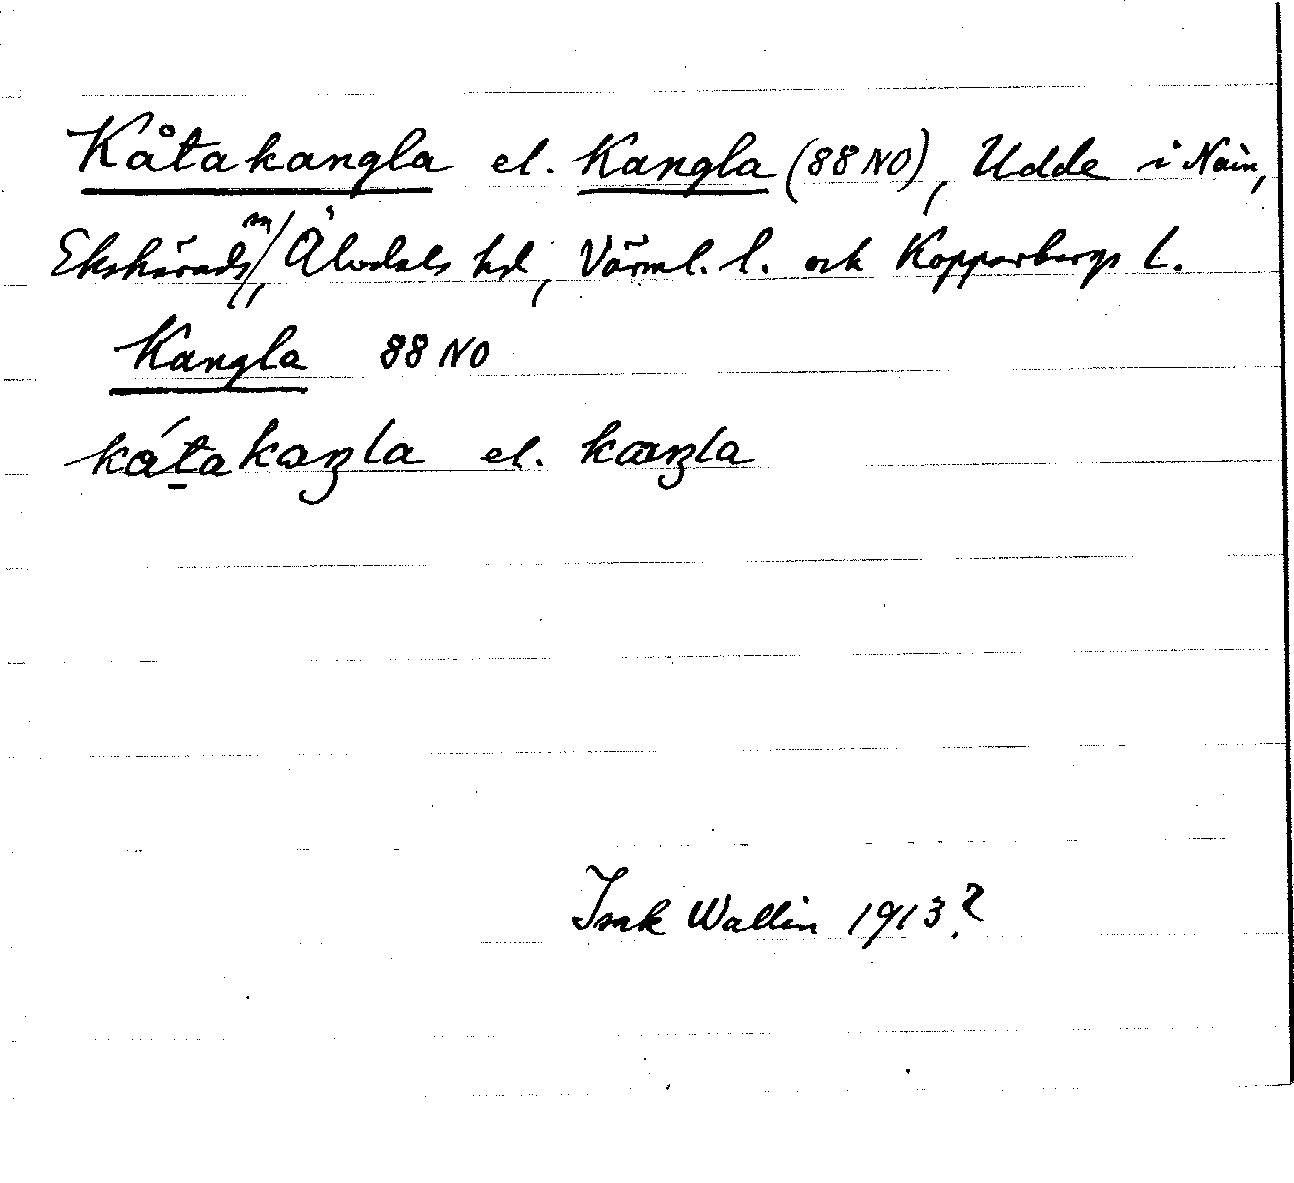 Kåtakangla el. Kangla (88 NO), Udde i Nain,
Ekshärads sn, Älvdals hd, Värml. l. och Kopparbergs l.
Kangla 88 NO
kátakaŋla el. kaŋla
Isak Wallin 1913?